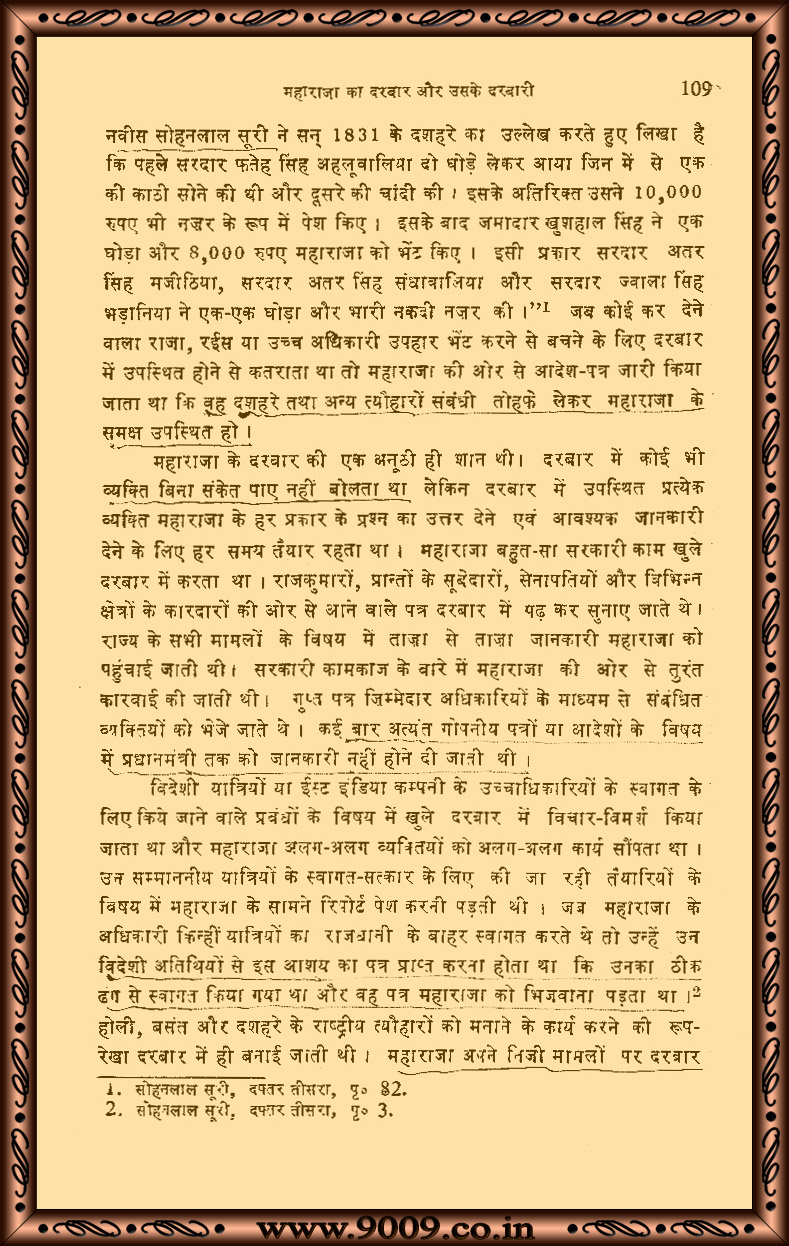 महाराजा का दरबार और उसके दरबारी 109
नवीस सोहनलाल सूरी ने सन् 1831 के दशहरे का उल्लेख करते हुए लिखा है
कि पहले सरदार फतेह सिंह अहलूवालिया दो घोड़े लेकर आया जिन में से एक
की काठी सोने की थी और दूसरे की चांदी की। इसके अतिरिक्त उसने 10,000
रुपए भी नज़र के रूप में पेश किए। इसके बाद जमादार खुशहाल सिंह ने एक
घोड़ा और 8,000 रुपए महाराजा को भेंट किए। इसी प्रकार सरदार अतर
सिंह मजीठिया, सरदार अतर सिंह संधावालिया और सरदार ज्वाला सिंह
भड़ानिया ने एक-एक घोड़ा और भारी नकदी नज़र की।”1 जब कोई कर देने
वाला राजा, रईस या उच्च अधिकारी उपहार भेंट करने से बचने के लिए दरबार
में उपस्थित होने से कतराता था तो महाराजा की ओर से आदेश-पत्र जारी किया
जाता था कि वह दशहरे तथा अन्य त्यौहारों संबंधी तोहफे लेकर महाराजा के
समक्ष उपस्थित हो।
महाराजा के दरबार की एक अनूठी ही शान थी। दरबार में कोई भी
व्यक्ति बिना संकेत पाए नहीं बोलता था लेकिन दरबार में उपस्थित प्रत्येक
व्यक्ति महाराजा के हर प्रकार के प्रश्न का उत्तर देने एवं आवश्यक जानकारी
देने के लिए हर समय तैयार रहता था। महाराजा बहुत-सा सरकारी काम खुले
दरबार में करता था। राजकुमारों, प्रान्तों के सूबेदारों, सेनापतियों और विभिन्न
क्षेत्रों के कारदारों की ओर से आने वाले पत्र दरबार में पढ़ कर सुनाए जाते थे।
राज्य के सभी मामलों के विषय में ताज़ा से ताज़ा जानकारी महाराजा को
पहुंचाई जाती थी। सरकारी कामकाज के बारे में महाराजा की ओर से तुरंत
कारवाई की जाती थी। गुप्त पत्र ज़िम्मेदार अधिकारियों के माध्यम से संबंधित
व्यक्तियों को भेजे जाते थे। कई बार अत्यंत गोपनीय पत्रों या आदेशों के विषय
में प्रधानमंत्री तक को जानकारी नहीं होने दी जाती थी।
विदेशी यात्रियों या ईस्ट इंडिया कम्पनी के उच्चाधिकारियों के स्वागत के
लिए किये जाने वाले प्रबंधों के विषय में खुले दरबार में विचार-विमर्श किया
जाता था और महाराजा अलग-अलग व्यक्तियों को अलग-अलग कार्य सौंपता था।
उन सम्माननीय यात्रियों के स्वागत-सत्कार के लिए की जा रही तैयारियों के
विषय में महाराजा के सामने रिपोर्ट पेश करनी पड़ती थी। जब महाराजा के
अधिकारी किन्हीं यात्रियों का राजधानी के बाहर स्वागत करते थे तो उन्हें उन
विदेशी अतिथियों से इस आशय का पत्र प्राप्त करना होता था कि उनका ठीक
ढंग से स्वागत किया गया था और वह पत्र महाराजा को भिजवाना पड़ता था।2
होली, बसंत और दशहरे के राष्ट्रीय त्यौहारों को मनाने के कार्य करने की रूप-
रेखा दरबार में ही बनाई जाती थी। महाराजा अपने निजी मामलों पर दरबार
1. सोहनलाल सूरी, दफ्तर तीसरा, पृ० 82.
2. सोहनलाल सूरी, दफ्तर तीसरा, पृ० 3.
www.9009.co.in